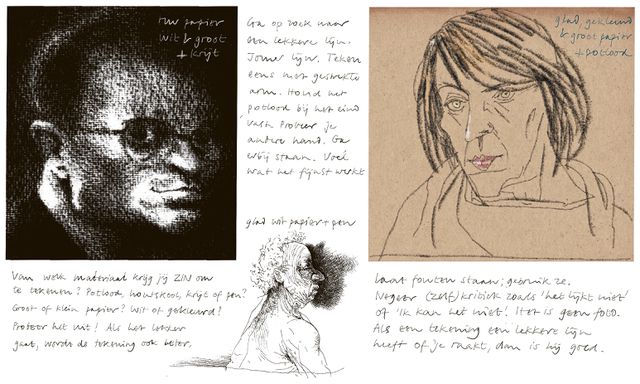 ruw papier
wit & groot
+ krijt
Ga op zoek naar
een lekkere lijn.
Jouw lijn. Teken
eens met gestrekte
arm. Houd het
potlood bij het eind
vast. Probeer je
andere hand. Ga
erbij staan. Voel
wat het fijnst werkt
glad, gekleurd
& groot papier
+ potlood
glad wit papier + pen
Van welk materiaal krijg jij ZIN om
te tekenen? Potlood, houtskool, krijt of pen?
Groot of klein papier? Wit of gekleurd?
Probeer het uit! Als het lekker
gaat, wordt de tekening ook beter.
Laat fouten staan; gebruik ze.
Negeer (zelf)kritiek zoals 'het lijkt niet'
of 'ik kan het niet'! Het is geen foto.
Als een tekening een lekkere lijn
heeft of je raakt, dan is hij goed.